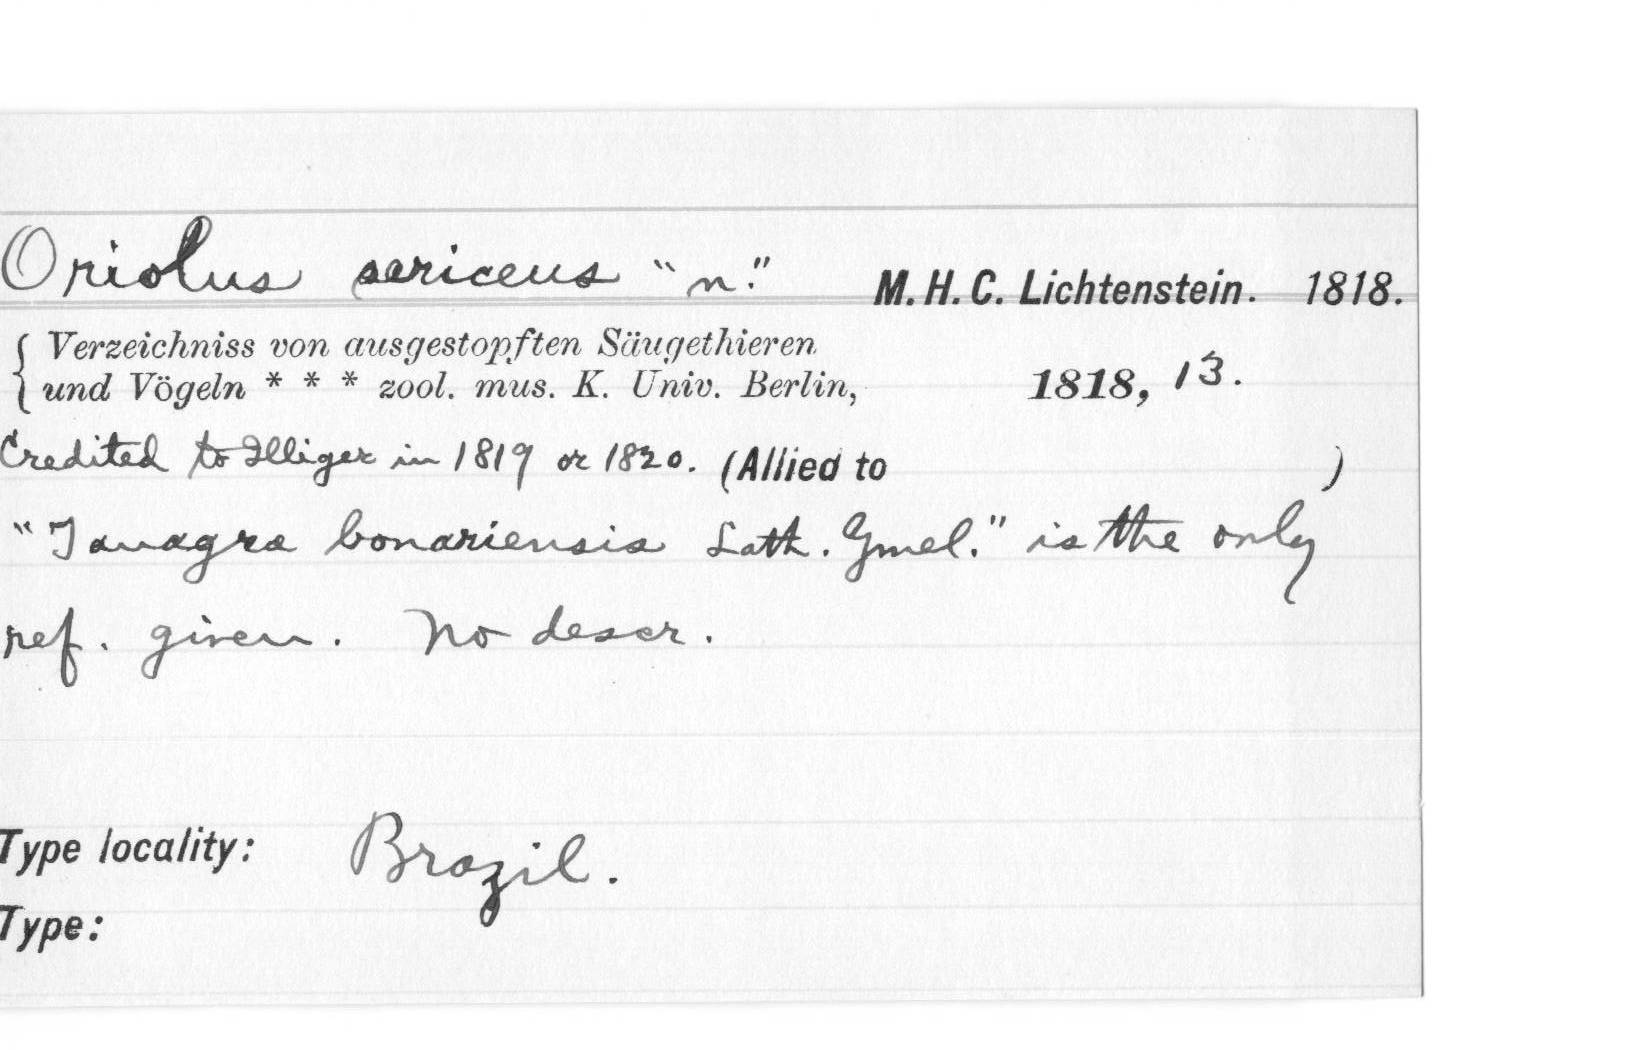 Oriolus sericeus "n." M. H. C. Lichtenstein. 1818.
Verzeichniss von ausgestopften Säugethieren
und Vögeln * * * zool. mus. K. Univ. Berlin, 1818, 13.
Credited to Illiger in 1819 or 1820. (Allied to )
"Tanagra bonariensis Lath. Gmel." is the only
ref. given. No descr.
Type locality: Brazil.
Type: